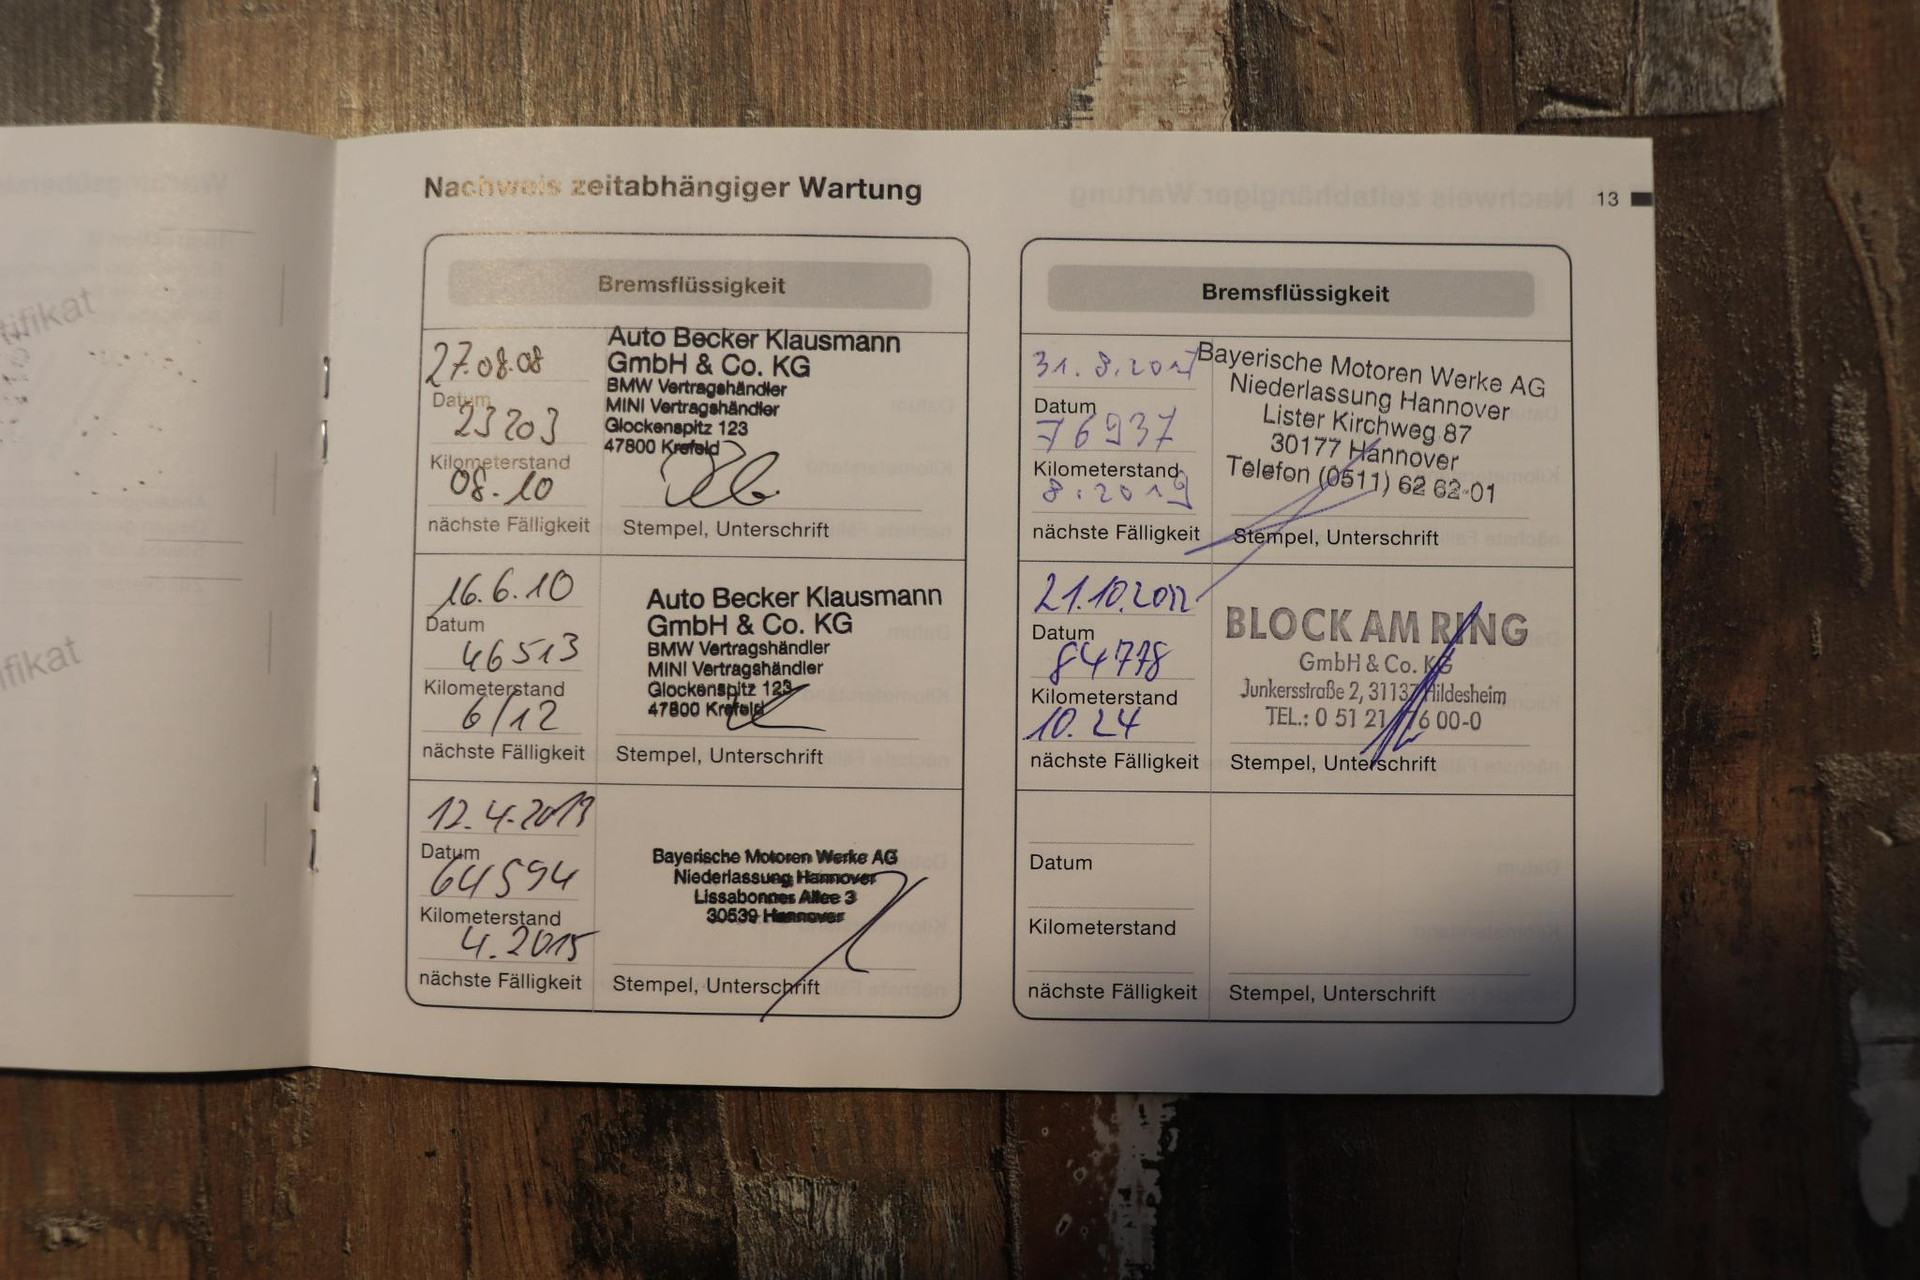 Nachweis zeitabhängiger Wartung
13
tifikat
ifikat
Bremsflüssigkeit
27.08.08
Datum
23203
Kilometerstand
08.10
nächste Fälligkeit
Auto Becker Klausmann
GmbH & Co. KG
BMW Vertragshändler
MINI Vertragshändler
Glockenspitz 123
47800 Krefeld
Stempel, Unterschrift
16.6.10
Datum
46513
Kilometerstand
6/12
nächste Fälligkeit
Auto Becker Klausmann
GmbH & Co. KG
BMW Vertragshändler
MINI Vertragshändler
Glockenspitz 123
47800 Krefeld
Stempel, Unterschrift
12.4.2013
Datum
64594
Kilometerstand
4.2015
nächste Fälligkeit
Bayerische Motoren Werke AG
Niederlassung Hannover
Lissabonner Allee 3
30539 Hannover
Stempel, Unterschrift
Bremsflüssigkeit
31.8.2017
Datum
76937
Kilometerstand
8.2019
nächste Fälligkeit
Bayerische Motoren Werke AG
Niederlassung Hannover
Lister Kirchweg 87
30177 Hannover
Telefon (0511) 62 62-01
Stempel, Unterschrift
21.10.2022
Datum
84778
Kilometerstand
10.24
nächste Fälligkeit
BLOCK AM RING
GmbH & Co. KG
Junkersstraße 2, 31137 Hildesheim
TEL.: 0 51 21 / 76 00-0
Stempel, Unterschrift
Datum
Kilometerstand
nächste Fälligkeit
Stempel, Unterschrift